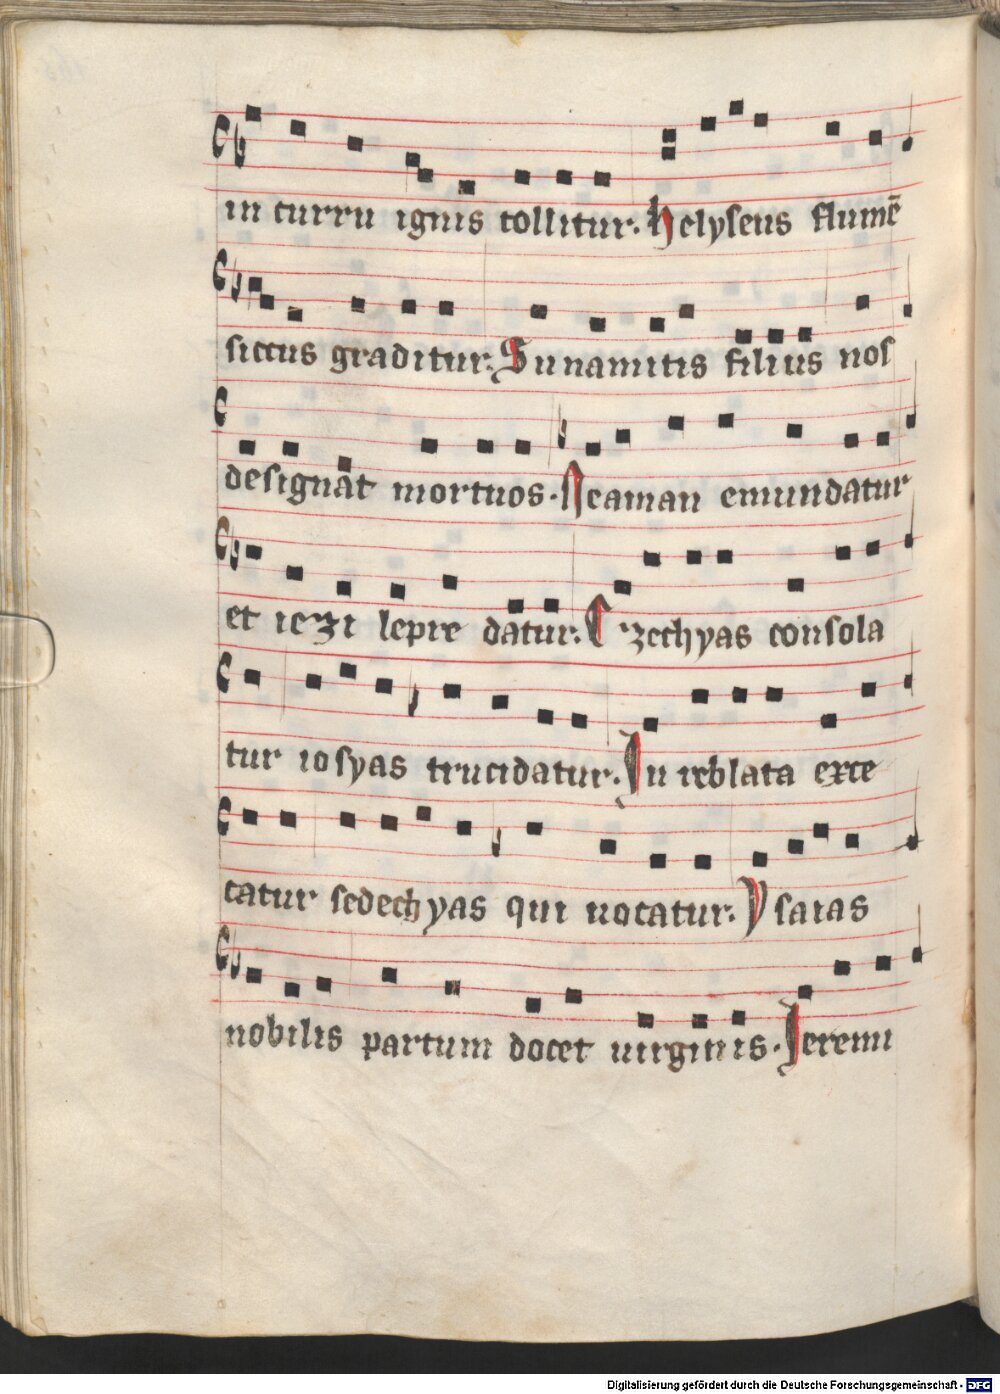 in curru ignis tollitur. Helyseus flumē
siccus graditur. Sunamitis filius nos
designat mortuos. Neaman emundatur
et iezi lepre datur. Ezechyas consola
tur iosyas trucidatur. In reblata exce
catur sedechyas qui uocatur. Ysaias
nobilis partum docet uirginis. Jeremi
Digitalisierung gefördert durch die Deutsche Forschungsgemeinschaft - DFG